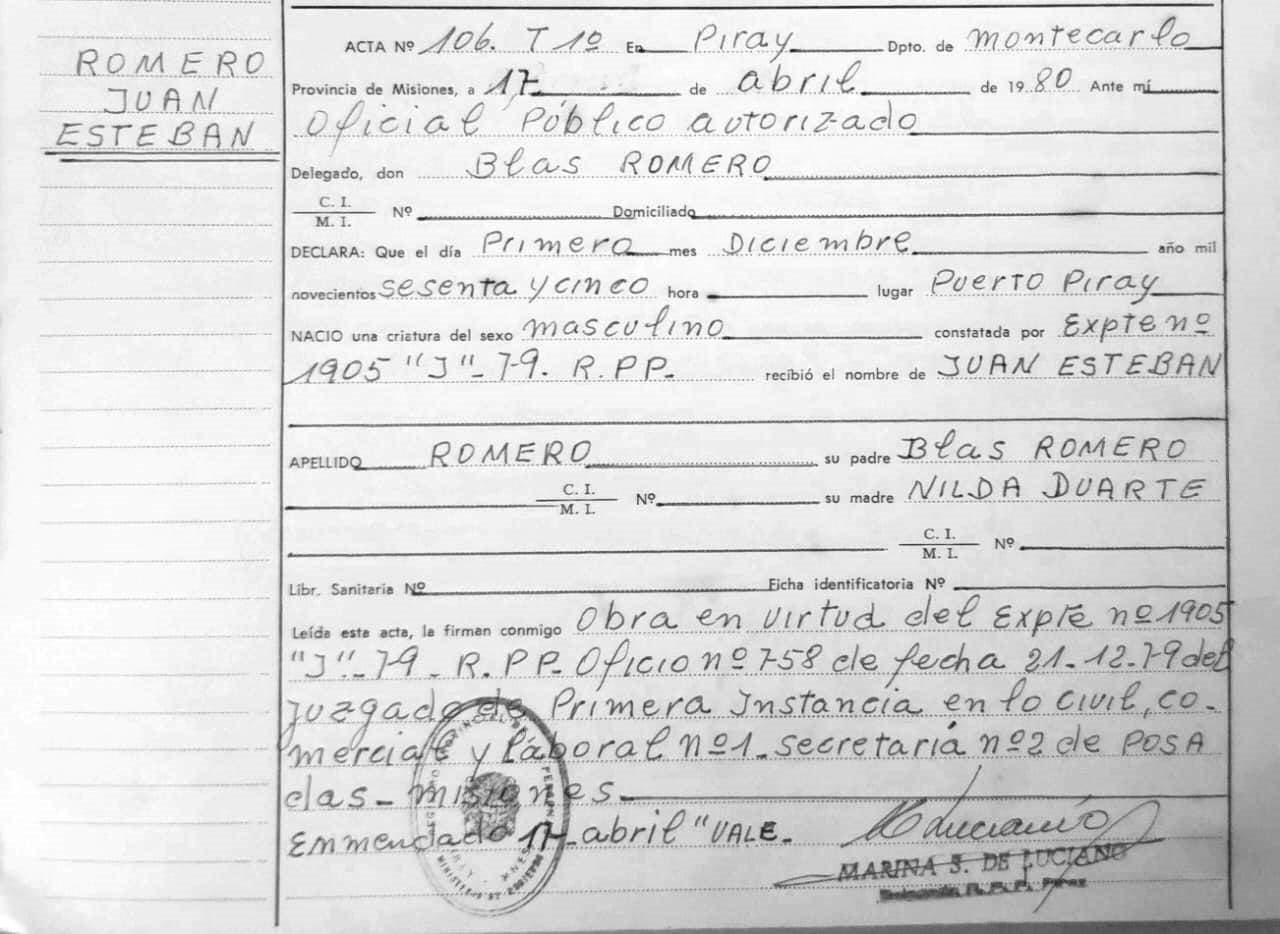 ROMERO
JUAN
ESTEBAN
ACTA Nº 106. T 1º En Piray Dpto. de Montecarlo
Provincia de Misiones, a 17 de abril de 1980 Ante mí
Oficial Público autorizado
Delegado, don Blas ROMERO
C. I.
M. I. Nº Domiciliado
DECLARA: Que el día Primero mes Diciembre año mil
novecientos sesenta y cinco hora lugar Puerto Piray
NACIO una criatura del sexo masculino constatada por Expte nº
1905 "J"-79. R.PP. recibió el nombre de JUAN ESTEBAN
APELLIDO ROMERO su padre Blas ROMERO
C. I.
M. I. Nº su madre NILDA DUARTE
C. I.
M. I. Nº
Libr. Sanitaria Nº Ficha identificatoria Nº
Leída esta acta, la firman conmigo Obra en virtud del Expte nº 1905
"J"-79-R.PP. Oficio nº 758 de fecha 21-12-79 del
Juzgado de Primera Instancia en lo civil, co-
mercial y laboral nº1-secretaria nº2 de POSA
das-misiones
Enmendado 17-abril "VALE-
MARINA S. DE LUCIANO